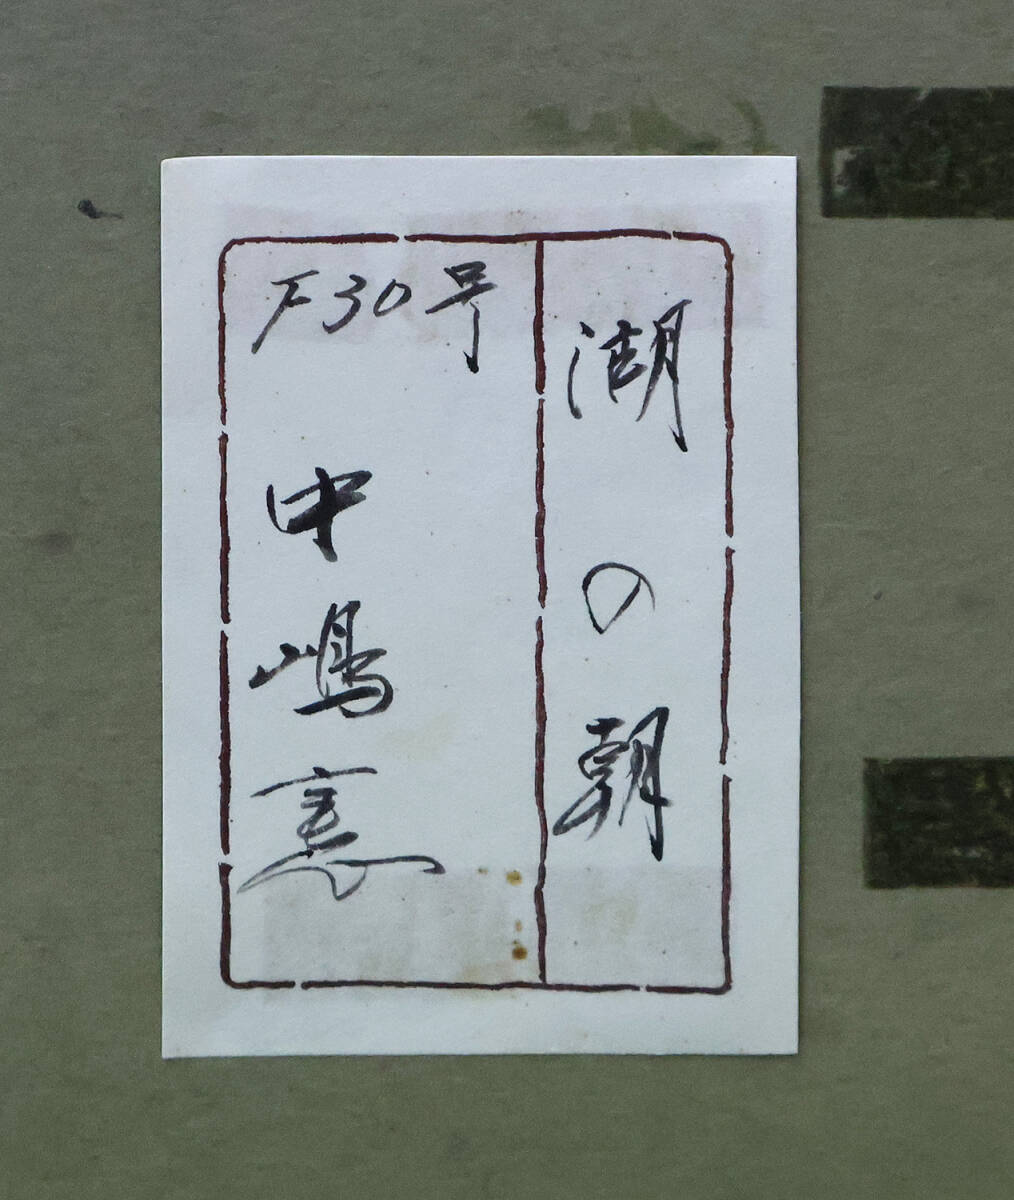 湖の朝
F30号
中嶋憲